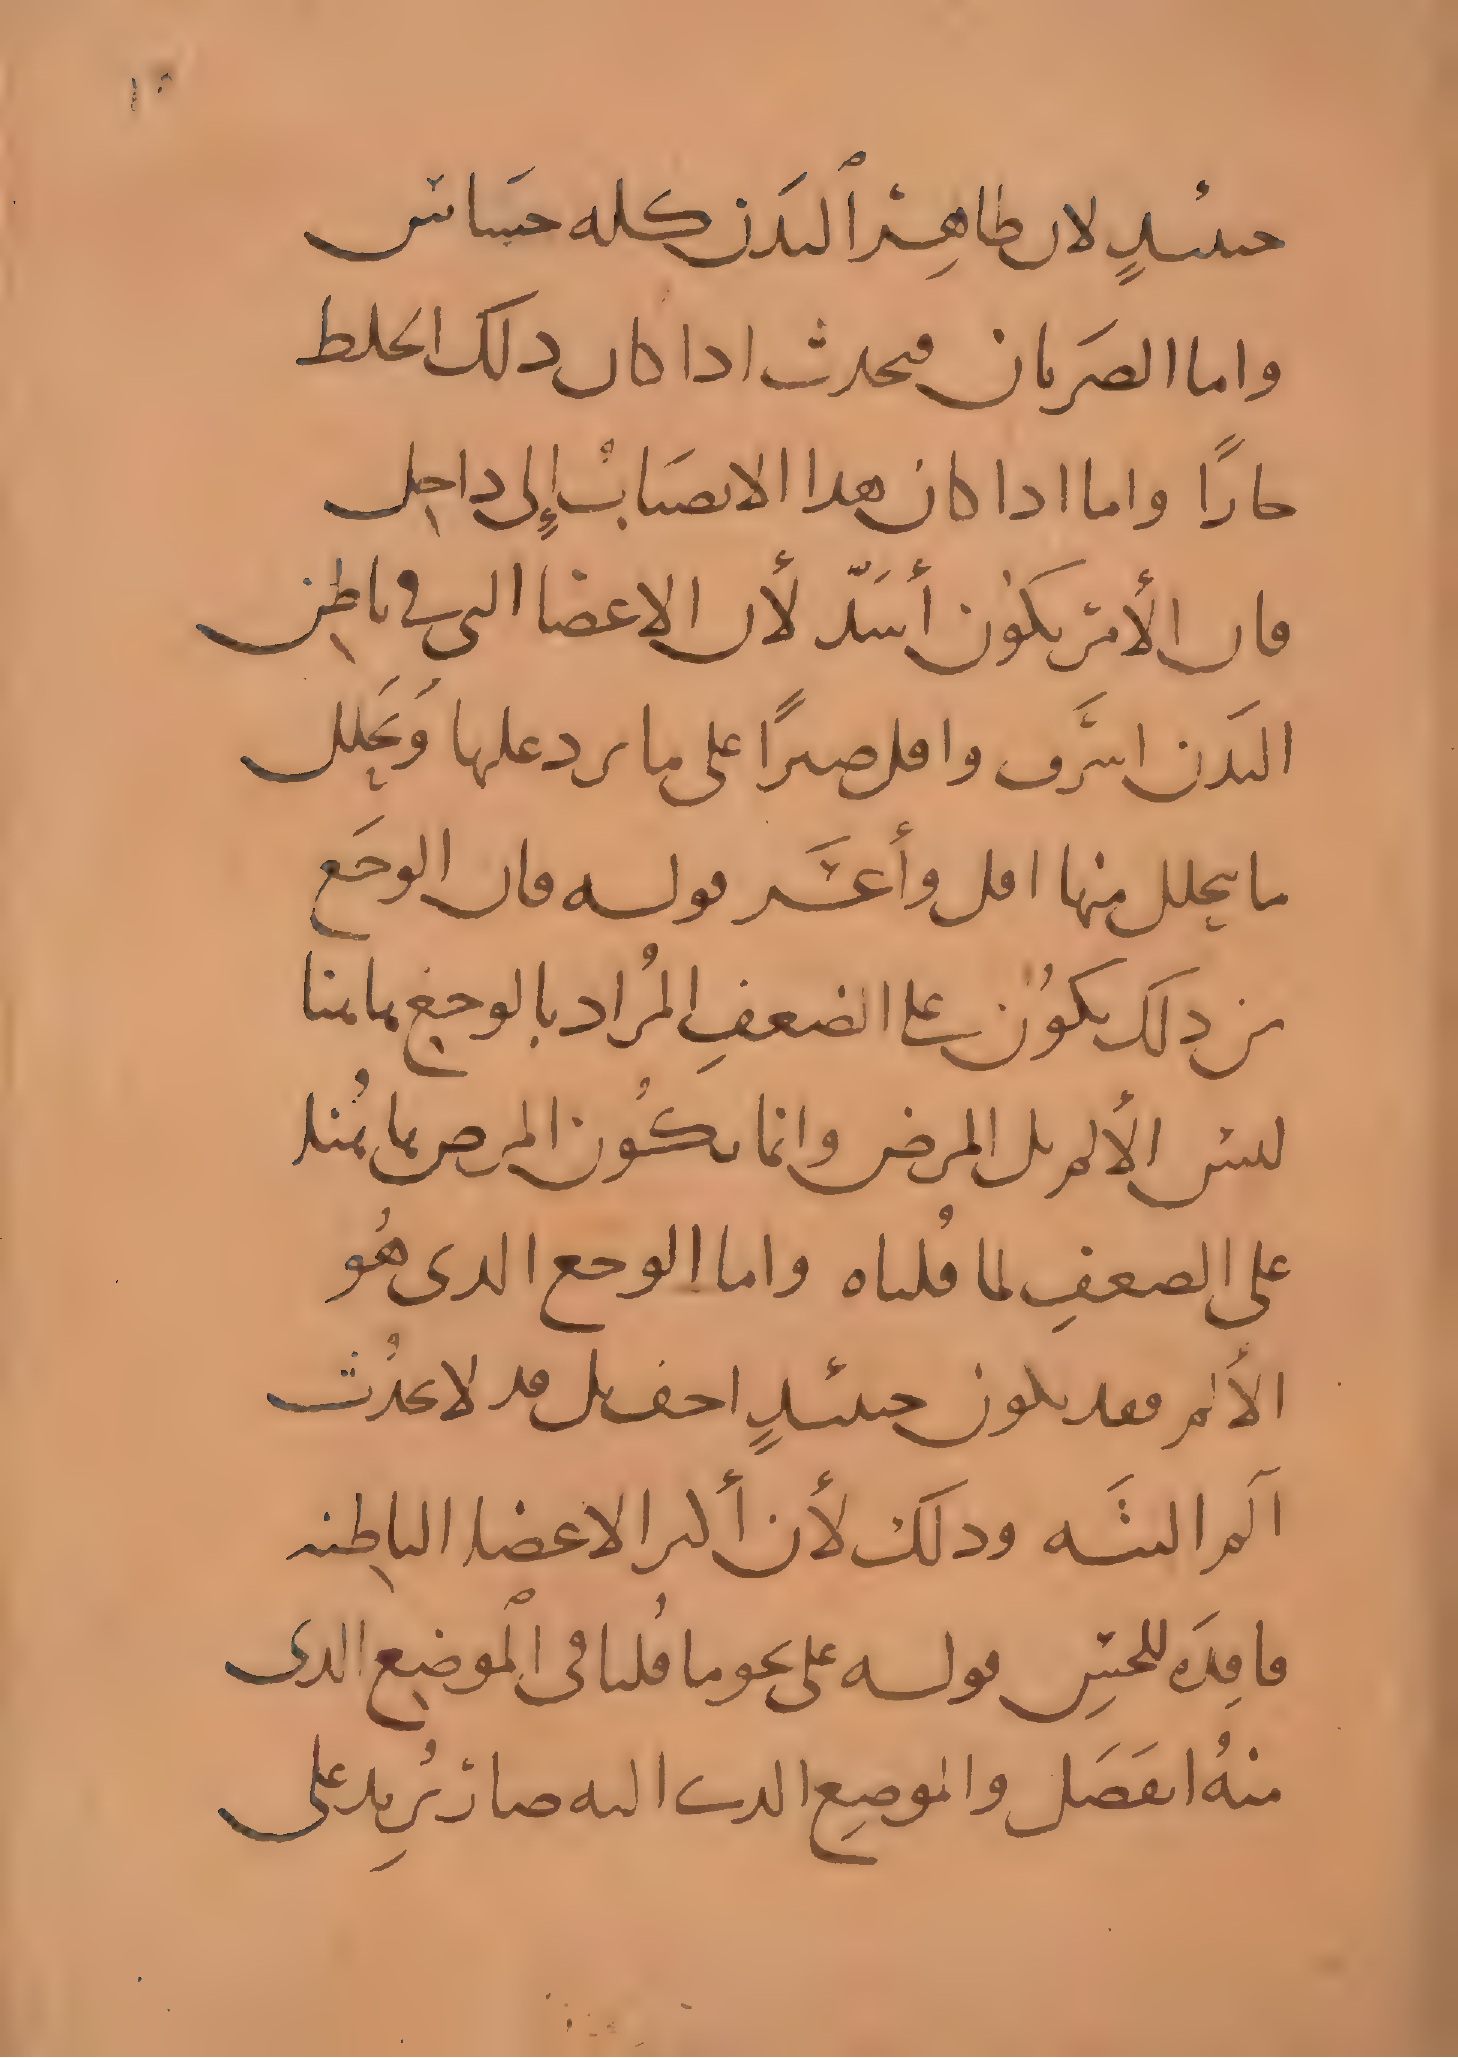 حينئذٍ لان ظاهر البدَن كله حسَاس
واما الضرَبان فيحدث اذا كان ذلك الخلط
حارًا واما اذا كان هذا الانصبَابُ إلى داخِل
فان الأمر يكوُن أشَدّ لأن الاعضا التى فى باطِن
البدَن اشرَف واقل صبرًا على ما يرد عليها وَتَحَلل
ما يتحلل منها اقل وأعسَر قوله فان الوجَع
من ذلك يكوُن على الضعفِ المُراد بالوجعِ هاهنا
ليس الألم بل المرض وانما يكُون المرض هاهُنا
على الضعفِ لما قُلناه واما الوجع الذى هُو
الألم فقد يكون حينئذٍ اخف بل قد لا يحدُث
آلم البتَّه وذلَك لأن أكثر الاعضا الباطِنه
فاقِدَه للحسِ قوله على نحو ما قُلنا فى الموضِع الذى
منهُ انفَصَل والموضِع الذى اليه صار يُريد على